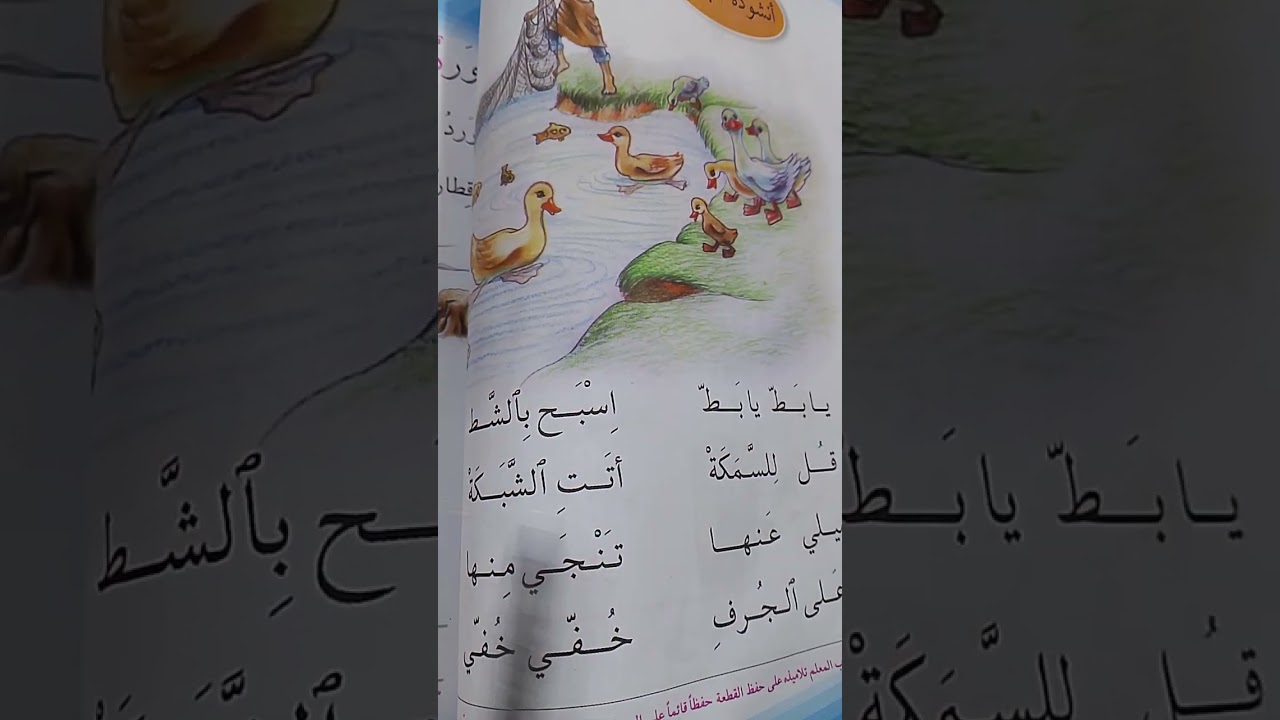 أنشودة
يا بَطّ يا بَطّ اِسْبَح بِٱلشَّط
قُل لِلسَّمَكَةْ أتَتِ ٱلشَّبَكَةْ
عَنها تَنْجَي مِنها
عَلى ٱلجُرفِ خُفّي خُفّي
المعلم تلاميذه على حفظ القطعة حفظاً قائماً على
قطار